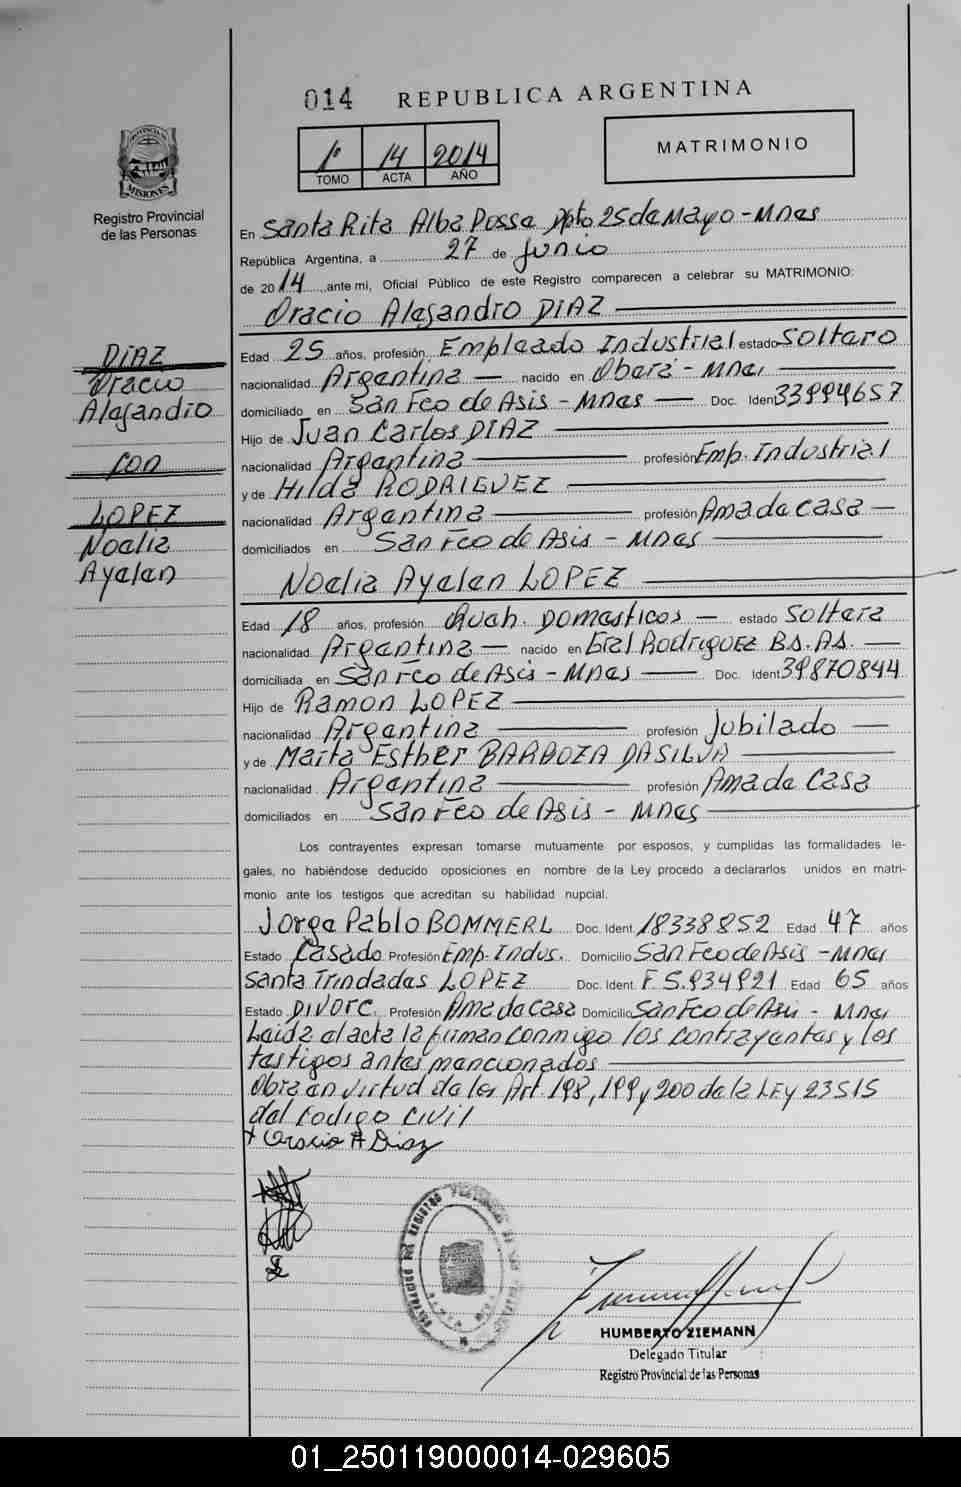 014 REPUBLICA ARGENTINA
PROVINCIA DE
MISIONES
Registro Provincial
de las Personas
1º 14 2014
TOMO ACTA AÑO
MATRIMONIO
En Santa Rita Alba Posse Dpto 25 de Mayo - Mnes
República Argentina, a 27 de Junio
de 2014, ante mi, Oficial Público de este Registro comparecen a celebrar su MATRIMONIO:
Oracio Alejandro DIAZ
DIAZ
Oracio
Alejandro
con
LOPEZ
Noelia
Ayelen
Edad 25 años, profesión Empleado Industrial estado soltero
nacionalidad Argentina nacido en Oberá - Mnes
domiciliado en San Fco de Asis - Mnes Doc. Ident 33994657
Hijo de Juan Carlos DIAZ
nacionalidad Argentina profesión Emp. Industrial
y de Hilda RODRIGUEZ
nacionalidad Argentina profesión Ama de casa
domiciliados en San Fco de Asis - Mnes
Noelia Ayelen LOPEZ
Edad 18 años, profesión Queh. Domesticos estado soltera
nacionalidad Argentina nacido en Gral Rodriguez BS.AS.
domiciliada en San Fco de Asis - Mnes Doc. Ident 39870844
Hijo de Ramon LOPEZ
nacionalidad Argentina profesión Jubilado
y de Marta Esther BARBOZA DASILVA
nacionalidad Argentina profesión Ama de Casa
domiciliados en San Fco de Asis - Mnes
Los contrayentes expresan tomarse mutuamente por esposos, y cumplidas las formalidades le-
gales, no habiéndose deducido oposiciones en nombre de la Ley procedo a declararlos unidos en matri-
monio ante los testigos que acreditan su habilidad nupcial.
Jorge Pablo BOMMERL Doc. Ident. 18338852 Edad 47 años
Estado Casado Profesión Emp. Indus. Domicilio San Fco de Asis - Mnes
Santa Trindades LOPEZ Doc. Ident. F 5.934921 Edad 65 años
Estado Divorc. Profesión Ama de casa Domicilio San Fco de Asis - Mnes
Leida el acta la firman conmigo los contrayentes y los
testigos antes mencionados
Obra en virtud de los Art. 198, 199 y 200 de la LEY 23515
del Codigo Civil
Oracio A Diaz
HUMBERTO ZIEMANN
Delegado Titular
Registro Provincial de las Personas
01_250119000014-029605